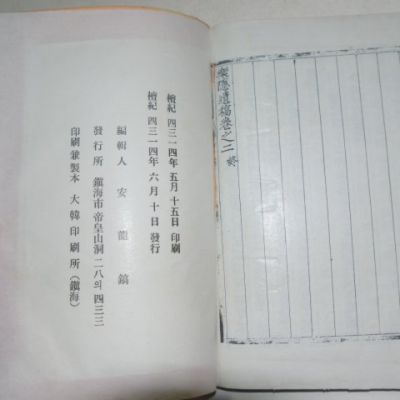 樂隱遺稿卷之二 終
檀紀 四三一四年 五月 十五日 印刷
檀紀 四三一四年 六月 十日 發行
編輯人 安 龍 鎬
發行所 鎭海市 帝皇山洞 二八의 四三三
印刷兼製本 大韓印刷所 (鎭海)